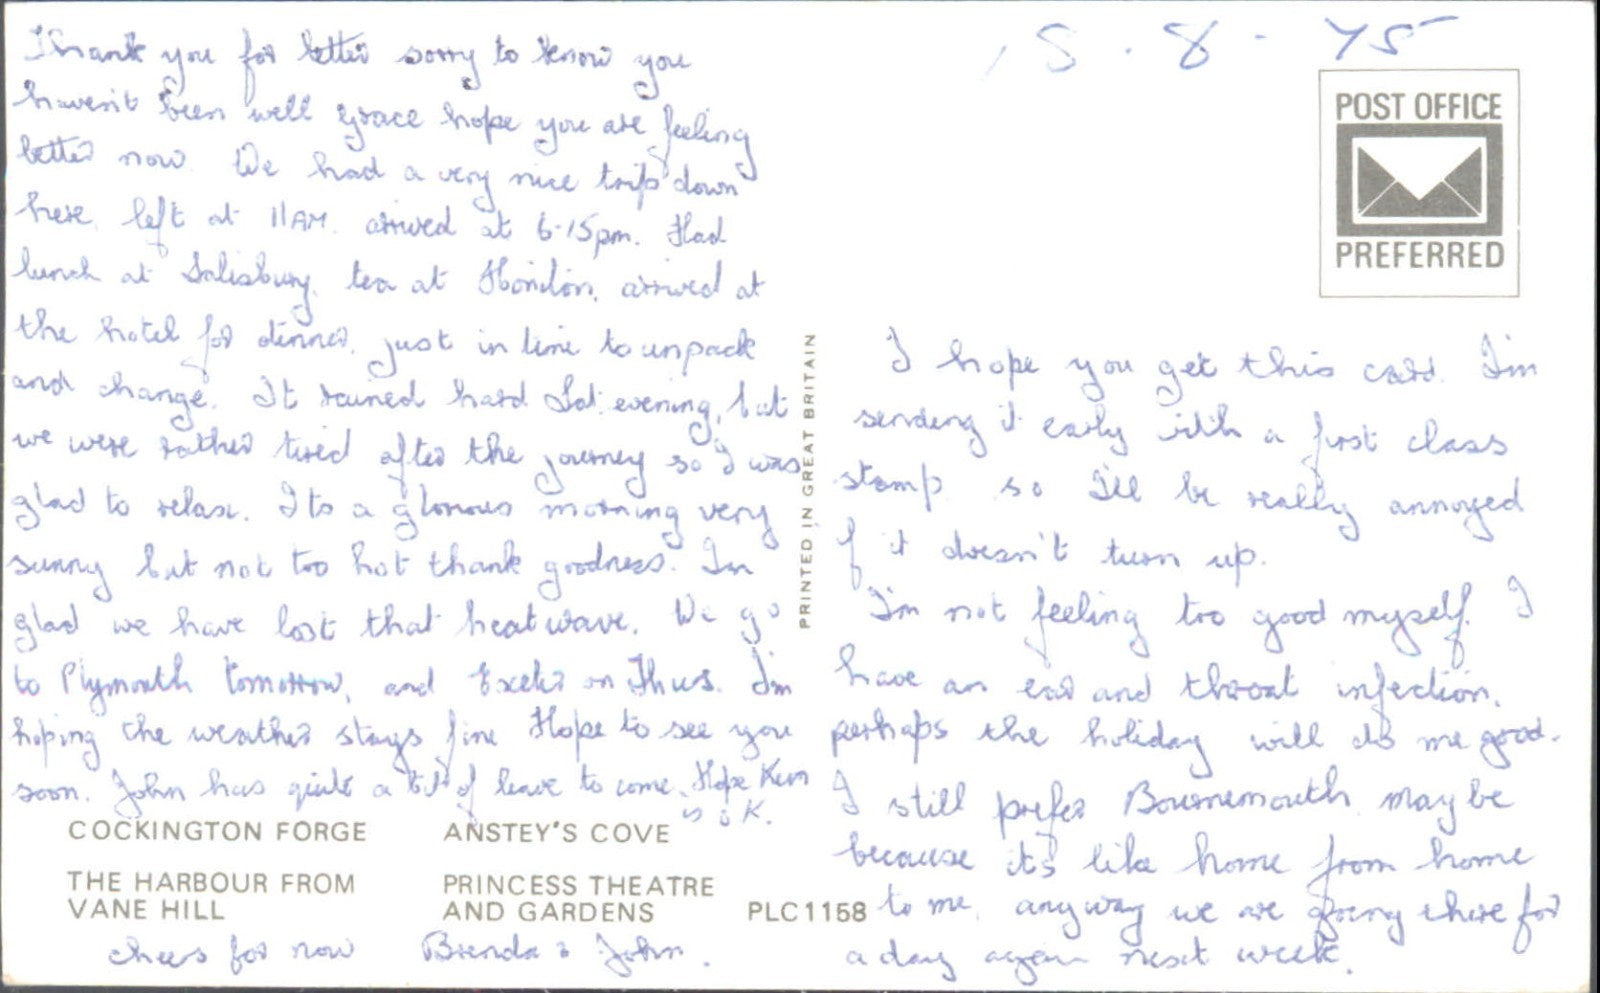 Thank you for letter sorry to know you
haven't been well Grace hope you are feeling
better now. We had a very nice trip down
here, left at 11AM. arrived at 6-15pm. Had
lunch at Salisbury, tea at Honiton, arrived at
the hotel for dinner, just in time to unpack
and change. It rained hard Sat. evening, but
we were rather tired after the journey so I was
glad to relax. Its a glorious morning very
sunny but not too hot thank goodness. Im
glad we have lost that heatwave. We go
to Plymouth tomorrow, and Exeter on Thurs. I'm
hoping the weather stays fine Hope to see you
soon. John has quite a bit of leave to come. Hope Ken
is OK.
COCKINGTON FORGE
ANSTEY'S COVE
THE HARBOUR FROM
VANE HILL
PRINCESS THEATRE
AND GARDENS
PLC1158
cheers for now Brenda & John.
PRINTED IN GREAT BRITAIN
8 - 75
POST OFFICE
PREFERRED
I hope you get this card. I'm
sending it early with a first class
stamp so I'll be really annoyed
if it doesn't turn up.
I'm not feeling too good myself. I
have an ear and throat infection,
perhaps the holiday will do me good.
I still prefer Bournemouth, may be
because it's like home from home
to me, anyway we are going there for
a day again next week.